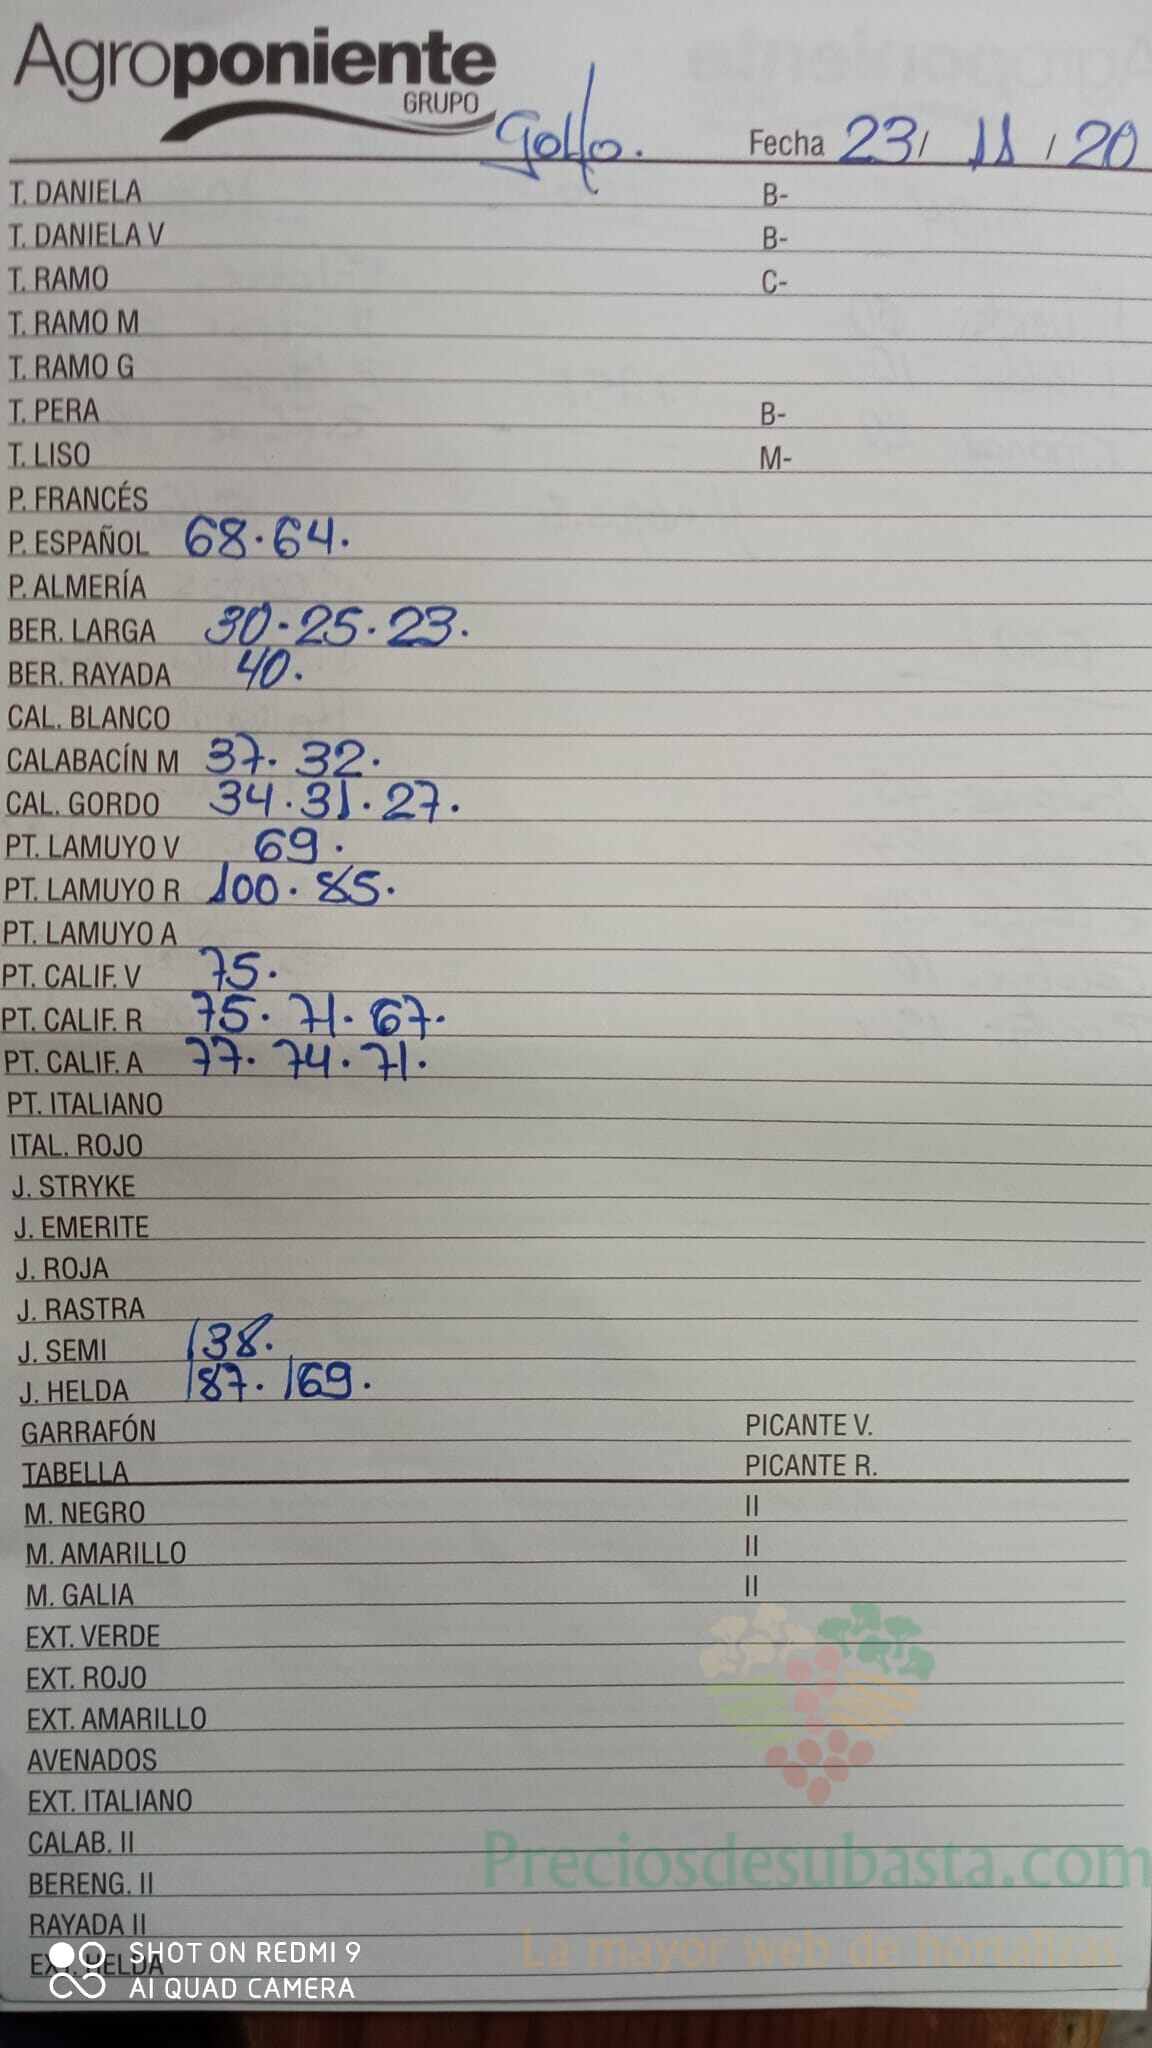 Agroponiente
GRUPO
Golfo. Fecha 23/ 11 / 20
T. DANIELA B-
T. DANIELA V B-
T. RAMO C-
T. RAMO M
T. RAMO G
T. PERA B-
T. LISO M-
P. FRANCÉS
P. ESPAÑOL 68. 64.
P. ALMERÍA
BER. LARGA 30. 25. 23.
BER. RAYADA 40.
CAL. BLANCO
CALABACÍN M 37. 32.
CAL. GORDO 34. 31. 27.
PT. LAMUYO V 69.
PT. LAMUYO R 100. 85.
PT. LAMUYO A
PT. CALIF. V 75.
PT. CALIF. R 75. 71. 67.
PT. CALIF. A 77. 74. 71.
PT. ITALIANO
ITAL. ROJO
J. STRYKE
J. EMERITE
J. ROJA
J. RASTRA
J. SEMI 138.
J. HELDA 187. 169.
GARRAFÓN PICANTE V.
TABELLA PICANTE R.
M. NEGRO II
M. AMARILLO II
M. GALIA II
EXT. VERDE
EXT. ROJO
EXT. AMARILLO
AVENADOS
EXT. ITALIANO
CALAB. II
Preciosdesubasta.com
BERENG. II
RAYADA II
La mayor web de hortalizas
EXT. HELDA
SHOT ON REDMI 9
AI QUAD CAMERA